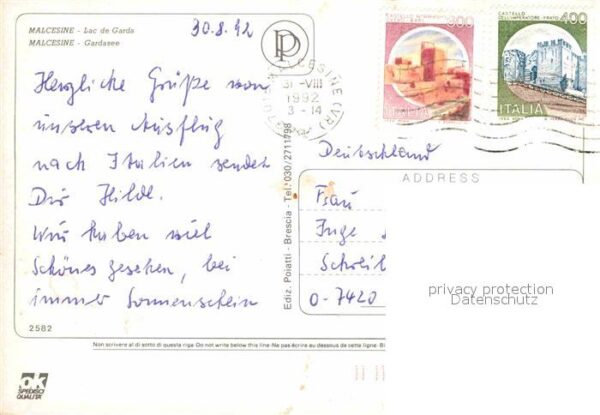 MALCESINE - Lac de Garda
MALCESINE - Gardasee
30.8.92
Herzliche Grüße von
unseren Ausflug
nach Italien sendet
Dir Hilde.
Wir haben viel
Schönes gesehen, bei
immer Sonnenschein
2582
ok
SPEDISCI
QUALITÀ
Ediz. Poiatti - Brescia - Tel. 030/2711798
PP
MALCESINE (VR)
31 -VIII
1992
3 - 14
300
ITALIA
CASTELLO
DELL'IMPERATORE - PRATO
400
ITALIA
Deutschland
ADDRESS
Frau
Inge
Schreib
O-7420
privacy protection
Datenschutz
Non scrivere al di sotto di questa riga - Do not write below this line - Ne pas écrire au dessous de cette ligne - Bi